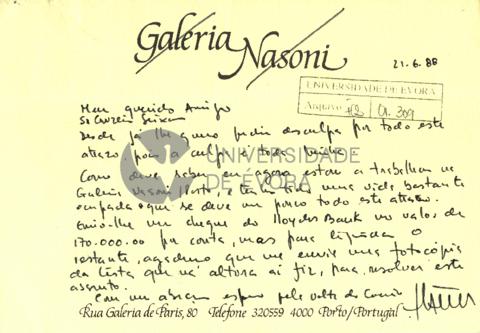 Galeria Nasoni
21.6.88
UNIVERSIDADE DE ÉVORA
Arquivo
Meu querido Amigo
Sr Cruzeiro Seixas
Desde já lhe quero pedir desculpa por todo este
atrazo, pois a culpa é toda minha.
Como deve saber eu agora estou a trabalhar na
Galeria Nasoni /Porto, e tenho tido uma vida bastante
ocupada o que se deve um pouco todo este atrazo.
Envio-lhe um cheque do Lloyds Bank no valor de
170.000.00 por conta, mas para liquidar o
restante, agradeço que me envie uma fotocópia
da lista que na altura aí fiz, para resolver este
assunto.
Com um abraço espero pela volta do Correio
Rua Galeria de Paris, 80 Telefone 320559 4000 Porto/Portugal
UNIVERSIDADE
DE ÉVORA